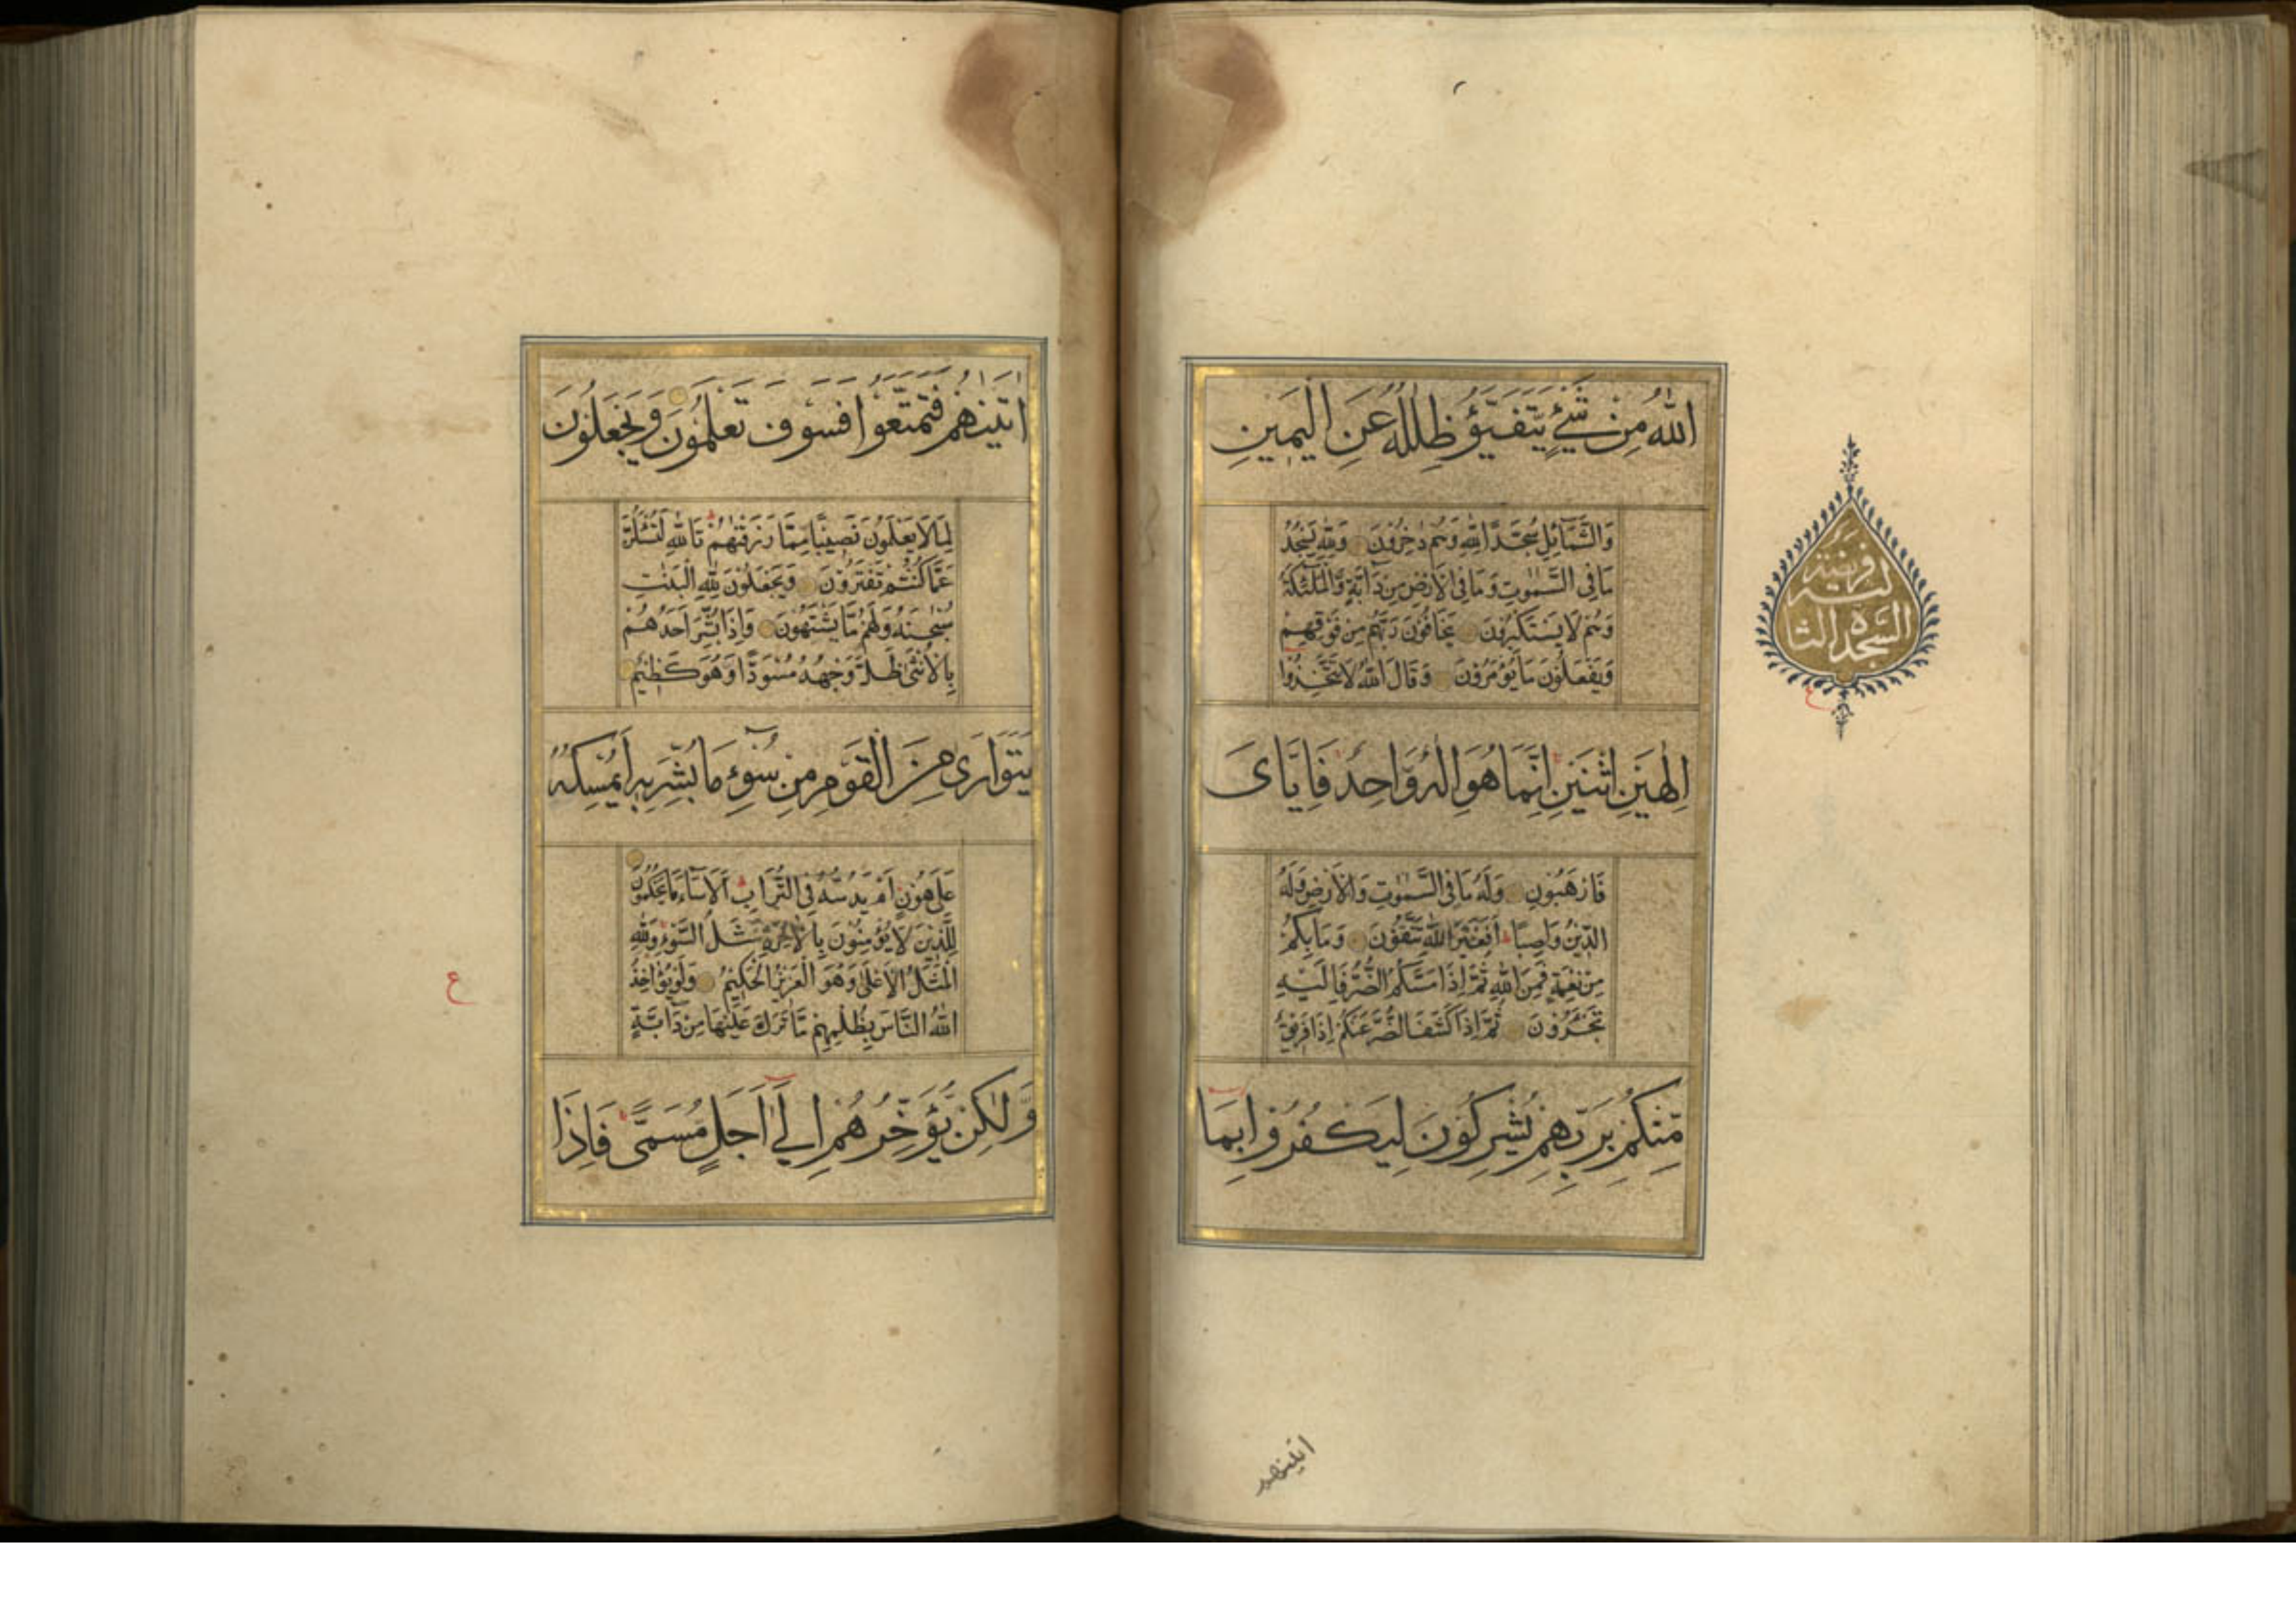 اللهُ مِنْ شَيْءٍ يَتَفَيَّؤُ ظِلٰلُهُ عَنِ الْيَمِينِ
وَالشَّمَآئِلِ سُجَّدًا لِلّٰهِ وَهُمْ دٰخِرُونَ وَلِلّٰهِ يَسْجُدُ
مَا فِى السَّمٰوٰتِ وَمَا فِى الْاَرْضِ مِنْ دَآبَّةٍ وَالْمَلٰٓئِكَةُ
وَهُمْ لَا يَسْتَكْبِرُونَ يَخَافُونَ رَبَّهُمْ مِنْ فَوْقِهِمْ
وَيَفْعَلُونَ مَا يُؤْمَرُونَ وَقَالَ اللهُ لَا تَتَّخِذُوٓا
اِلٰهَيْنِ اثْنَيْنِ اِنَّمَا هُوَ اِلٰهٌ وَّاحِدٌ فَاِيَّاىَ
فَارْهَبُونِ وَلَهُ مَا فِى السَّمٰوٰتِ وَالْاَرْضِ وَلَهُ
الدِّيْنُ وَاصِبًا اَفَغَيْرَ اللهِ تَتَّقُونَ وَمَا بِكُمْ
مِنْ نِعْمَةٍ فَمِنَ اللهِ ثُمَّ اِذَا مَسَّكُمُ الضُّرُّ فَاِلَيْهِ
تَجْئَرُونَ ثُمَّ اِذَا كَشَفَ الضُّرَّ عَنْكُمْ اِذَا فَرِيْقٌ
مِّنْكُمْ بِرَبِّهِمْ يُشْرِكُونَ لِيَكْفُرُوا بِمَآ
السجدة الثا
لثـة
فريضة
ع
اتينهم
اٰتَيْنٰهُمْ فَتَمَتَّعُوْا فَسَوْفَ تَعْلَمُونَ وَيَجْعَلُوْنَ
لِمَا لَا يَعْلَمُونَ نَصِيْبًا مِمَّا رَزَقْنٰهُمْ تَاللهِ لَتُسْئَلُنَّ
عَمَّا كُنْتُمْ تَفْتَرُوْنَ وَيَجْعَلُوْنَ لِلّٰهِ الْبَنٰتِ
سُبْحٰنَهُ وَلَهُمْ مَّا يَشْتَهُوْنَ وَاِذَا بُشِّرَ اَحَدُهُمْ
بِالْاُنْثٰى ظَلَّ وَجْهُهُ مُسْوَدًّا وَهُوَ كَظِيْمٌ
يَتَوَارٰى مِنَ الْقَوْمِ مِنْ سُوْٓءِ مَا بُشِّرَ بِهِ اَيُمْسِكُهُ
عَلٰى هُوْنٍ اَمْ يَدُسُّهُ فِى التُّرَابِ اَلَا سَآءَ مَا يَحْكُمُوْنَ
لِلَّذِيْنَ لَا يُؤْمِنُوْنَ بِالْاٰخِرَةِ مَثَلُ السَّوْءِ وَلِلّٰهِ
الْمَثَلُ الْاَعْلٰى وَهُوَ الْعَزِيْزُ الْحَكِيْمُ وَلَوْ يُؤَاخِذُ
اللهُ النَّاسَ بِظُلْمِهِمْ مَّا تَرَكَ عَلَيْهَا مِنْ دَآبَّةٍ
وَّلٰكِنْ يُّؤَخِّرُهُمْ اِلٰٓى اَجَلٍ مُّسَمًّى فَاِذَا
ع